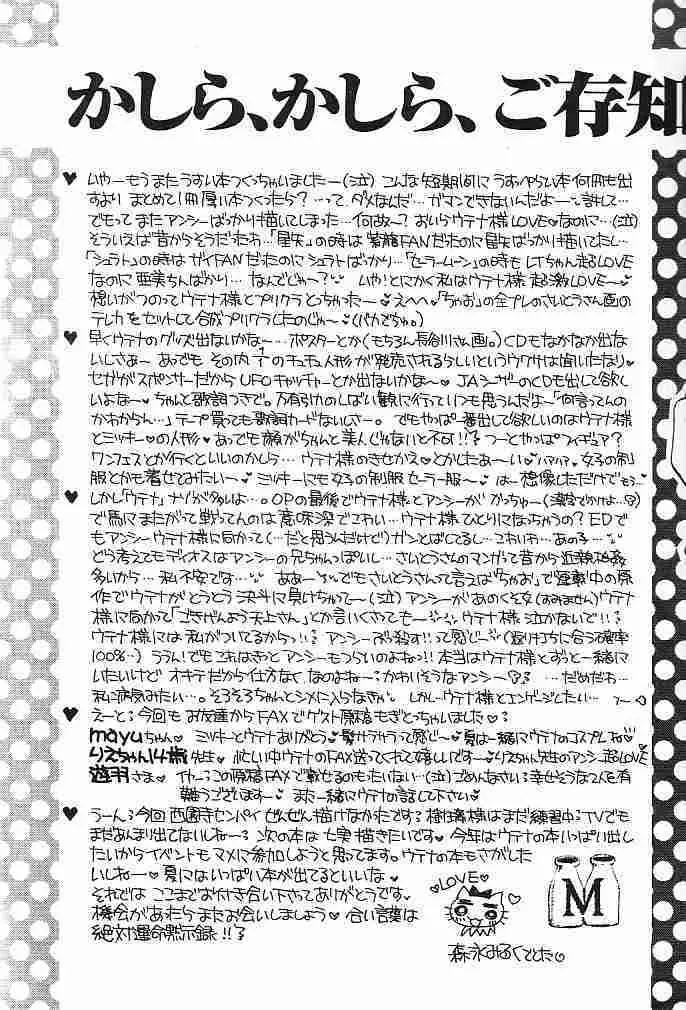 かしら、かしら、ご存知
♥ いやーもうまたうすい本つくっちゃいましたー(泣) こんな短期間にうすっぺらい本何冊も出
すより まとめて1冊厚い本つくったら?…って、ダメなんだ…ガマンできないんだよー…許して…
でもって またアンシーばっかり描いてしまった…何故〜? おいらウテナ様LOVE♡なのに…(泣)
そういえば昔からそうだったわ…「星矢」の時は紫龍FANだったのに星矢ばっかり描いてたし…
「シュラト」の時はガイFANだったのにシュラトばっかり…「セーラームーン」の時も LTちゃん超LOVE
なのに亜美ちんばっかり…なんでじゃ〜? いや!とにかく私はウテナ様 超激LOVE〜♡
想いがつのってウテナ様とプリクラとっちった〜♡えへへ。「ちゃお」の全プレのさいとうさん画の
テレカをセットして合成プリクラしたのじゃ〜♡(バカでちゅ。)
♥ 早くウテナのグッズ出ないかな〜…ポスターとか(もちろん長谷川さん画。)CDもなかなか出な
いしさぁ〜 あっでも その内 チュチュ人形が発売されるらしいというウワサは聞いたなり♡
セガがスポンサーだから UFOキャッチャーとか出ないかな〜♡ JAシーザーのCDも出して欲し
いよな〜♡ちゃんと歌詞つきで。万有引力のしばい観に行っていつも思うんだよ〜「何言ってんの
かわからん…」テープ買っても歌詞カードないしさー。でもやっぱ一番出して欲しいのはウテナ様
とミッキー♡の人形♡あっでも顔がちゃんと美人じゃないと不可!! つーとやっぱフィギュア?
ワンフェスとか行くといいのかしら…ウテナ様のきせかえ♡とかしたあ〜い♡ハァハァ。女子の制
服とかも着せてみたい〜♡ミッキーにも女子の制服 セーラー服〜♡は〜想像しただけでもう…
♥ しかし「ウテナ」ナゾが多いよ…。OPの最後でウテナ様とアンシーが がっちゅー(漢字でかけよ…)
で馬にまたがって戦ってんのは意味深でこわい…ウテナ様ひとりになっちゃうの? EDで
もアンシーウテナ様に向かって(…だと思うんだけど)ガンとばしてるし…こわいわ…あの子…
どう考えてもディオスはアンシーの兄ちゃんっぽいし…さいとうさんのマンガって昔から近親相姦
多いから…私不安です… ああ〜でもさいとうさんって言えば「ちゃお」で連載中の原
作でウテナがとうとう決斗に負けちゃって〜(泣) アンシーがあのくそ女(すみません)ウテナ
様に向かって「ごきげんよう天上さん」とか言いくさってもー ウテナ様泣かないで!!
ウテナ様には私がついてるから!! アンシーぶっ殺す!!って感じ〜(返り討ちに合う確率
100%…) ううん!でもこれはきっとアンシーもつらいのよねっ!! 本当はウテナ様とずっと一緒に
いたいけど オキテだから仕方なく なのよね〜かわいそうなアンシー…だめだわ…
私に病気みたい…。そろそろちゃんとシメに入らなきゃ。しかしウテナ様とエンゲージしたい…
♥ えーと:今回も お友達からFAXでゲスト原稿もぎとっちゃいました♡:
mayuちゃん♡ ミッキーとウテナありがとう♡髪サラサラって感じ〜♡夏は一緒にウテナのコスプレね♡
りえちゃん14歳先生♡ 忙しい中ウテナのFAX送ってくれて嬉しいですー♡りえちゃん先生のアンシー超LOVE
遊羽さま♡ イヤーこの原稿FAXで載せるのもったいない…(泣) ごめんなさい:幸せそうな2人を有
難うございます〜♡ また一緒にウテナの話して下さい♡
♥ うーん:今回 西園寺センパイ ぜんぜん描けなかたです:桐生冬芽様はまだ練習中:TVでも
まだあんまり出てないしね〜:次の本は七実描きたいです♡今年はウテナの本いっぱい出し
たいからイベントもマメに参加しようと思ってます。ウテナの本もさがした
いしねー♡夏にはいっぱい本が出てるといいな♡
それでは ここまでお付き合い下さってありがとうです。
機会があったらまたお会いしましょう♡合い言葉は
絶対運命黙示録!!
♡LOVE♡
M
森永みるくでした♡